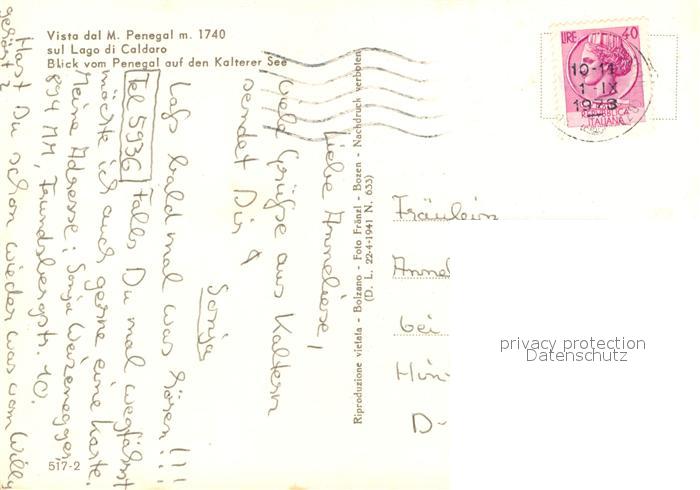 Vista dal M. Penegal m. 1740
sul Lago di Caldaro
Blick vom Penegal auf den Kalterer See
LIRE 40
10-11
1-IX
1973
REPUBBLICA
ITALIANA
Riproduzione vietata - Bolzano - Foto Fränzl - Bozen - Nachdruck verboten
(D. L. 22-4-1941 N. 633)
Liebe Anneliese!
Viele Grüße aus Kaltern
sendet Dir
Sonja
Laß bald mal was hören!!!
Tel 5936 Falls Du mal wegfährst
möchte ich auch gerne eine Karte.
Meine Adresse: Sonja Weizenegger
894 MM, Frundsbergstr. 10.
Hast Du schon wieder was vom Willy
gehört?
Fräulein
Anne
bei
D-
privacy protection
Datenschutz
517-2